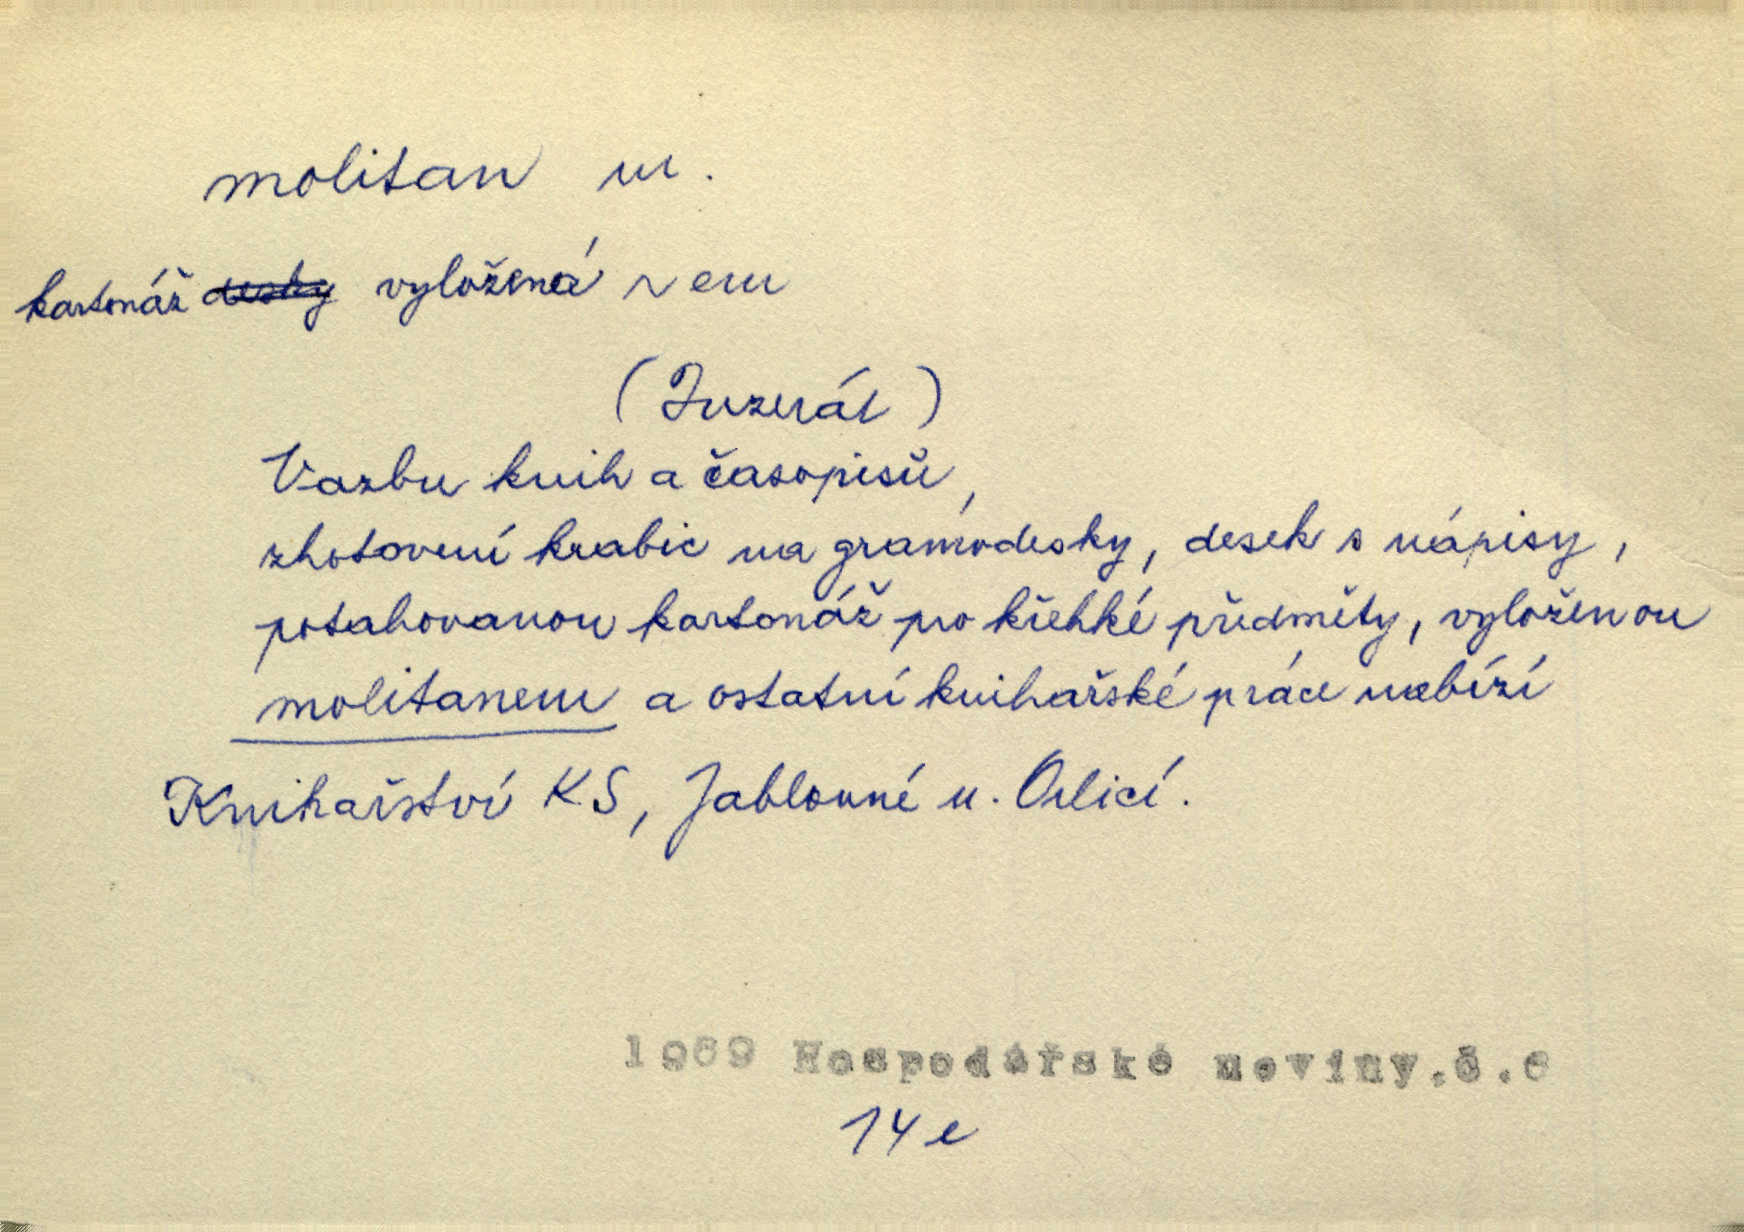 molitan m.
kartonáž desky vyložená ~em
(Inzerát)
Vazbu knih a časopisů,
zhotovení krabic na gramodesky, desek s nápisy,
potahovanou kartonáž pro křehké předměty, vyloženou
molitanem a ostatní knihařské práce nabízí
Knihařství KS, Jablonné n. Orlicí.
1969 Hospodářské noviny.č.6
14e